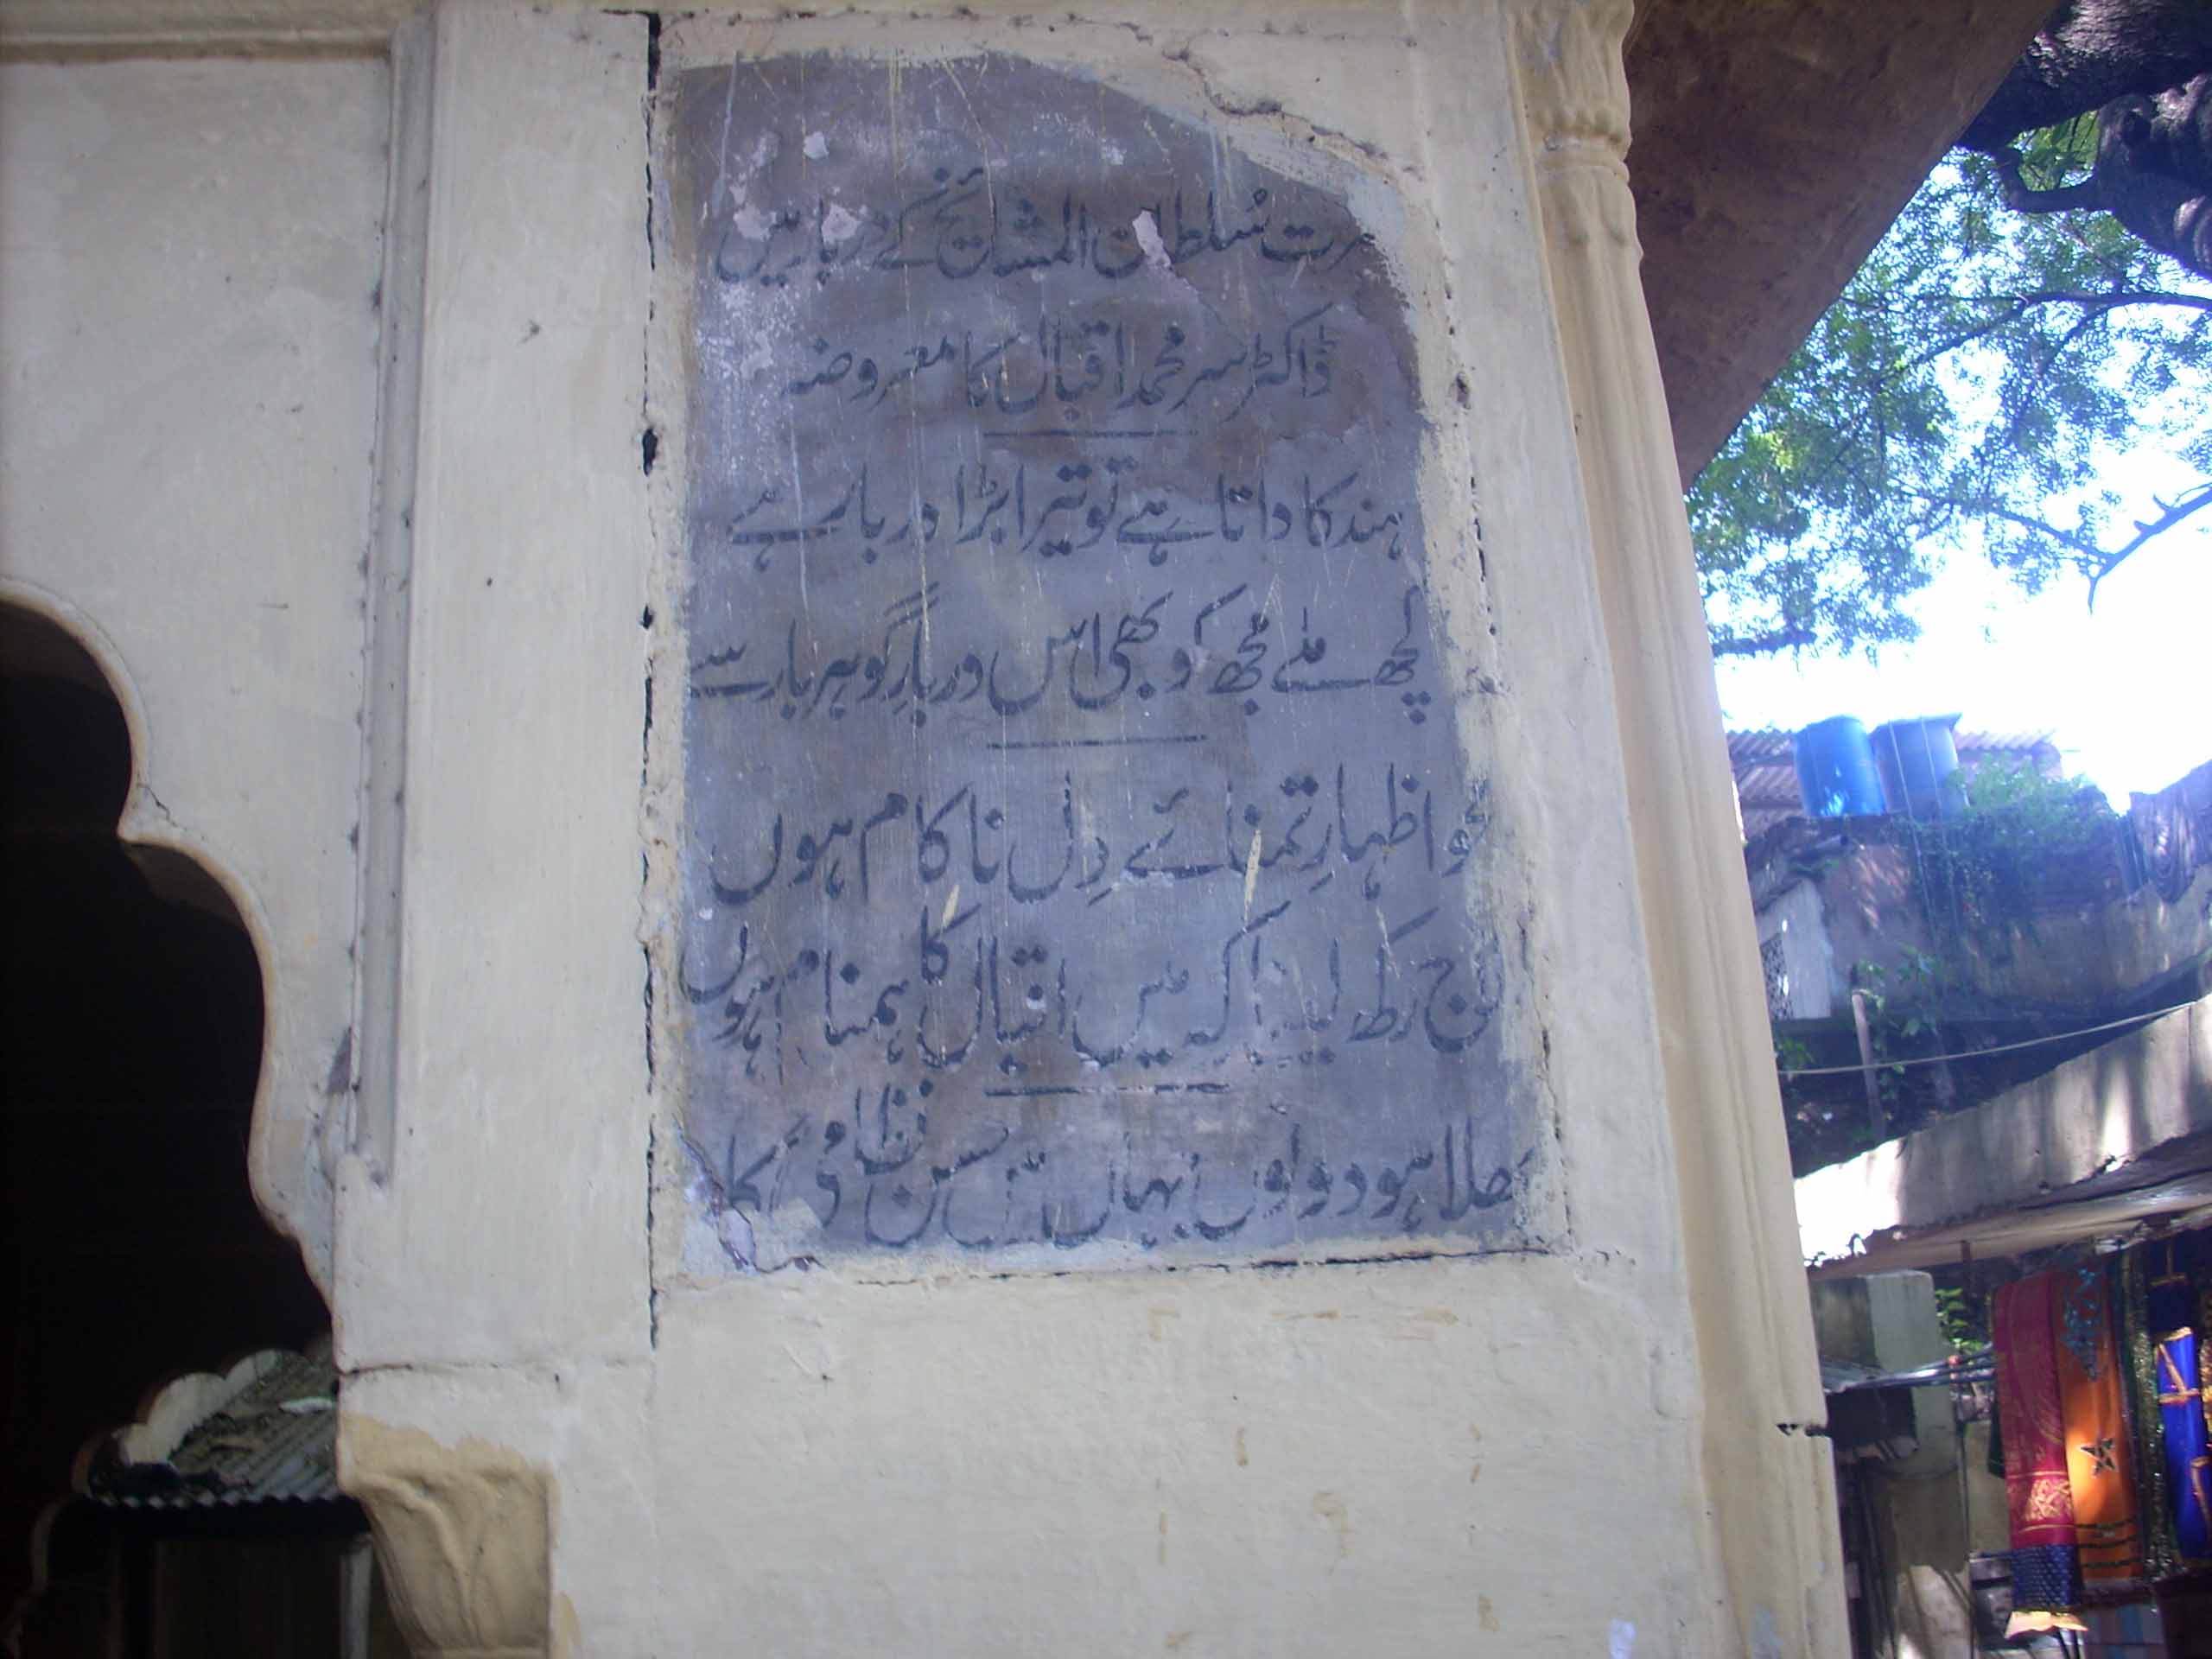 حضرت سلطان المشائخ کے دربار میں
ڈاکٹر سر محمد اقبال کا معروضہ
ہند کا داتا ہے تو تیرا بڑا دربار ہے
کچھ ملے مجھ کو بھی اس دربارِ گوہر بار سے
محو اظہارِ تمنائے دِل ناکام ہوں
لاج رکھ لینا کہ میں اقبال کا ہمنام ہوں
بھلا ہو دونوں جہاں میں حسن نظامی کا